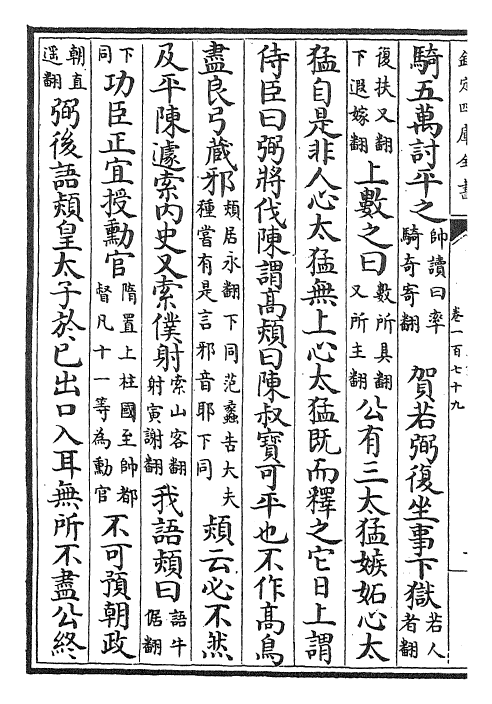 欽定四庫全書
卷一百七十九
騎五萬討平之帥讀曰率騎奇寄翻 賀若弼復坐事下獄若人者翻
復扶又翻下遐嫁翻上數之曰數所具翻又所主翻公有三太猛嫉妬心太
猛自是非人心太猛無上心太猛既而釋之它日上謂
侍臣曰弼將伐陳謂高熲曰陳叔寶可平也不作高鳥
盡良弓藏邪熲居永翻下同范蠡告大夫種嘗有是言邪音耶下同熲云必不然
及平陳遽索内史又索僕射索山客翻射寅謝翻我語熲曰語牛倨翻
下同功臣正宜授勳官隋置上柱國至帥都督凡十一等為勳官不可預朝政
朝直遥翻弼後語熲皇太子於已出口入耳無所不盡公終